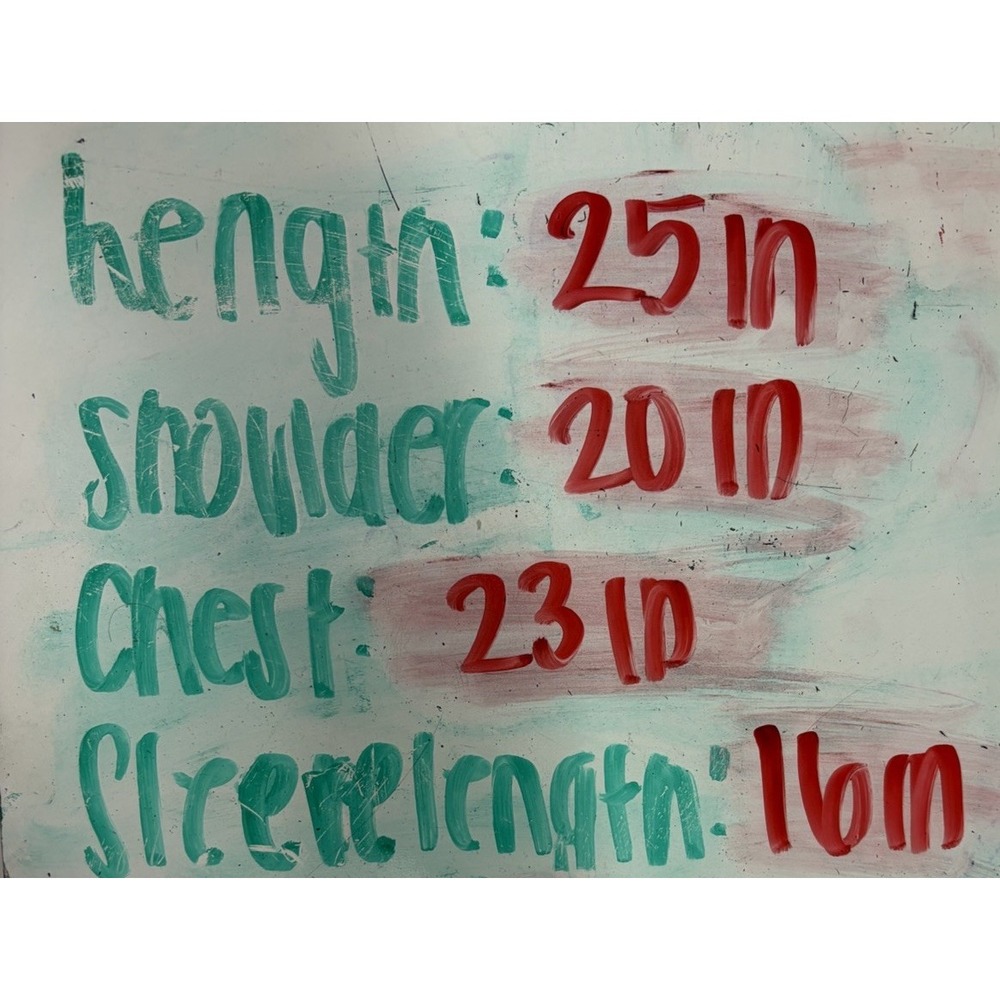 Length: 25 in
Shoulder: 20 in
Chest: 23 in
Sleeve length: 16 in